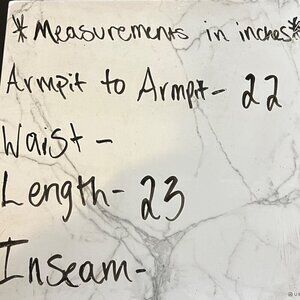 *Measurements in inches*
Armpit to Armpit- 22
Waist -
Length- 23
Inseam-